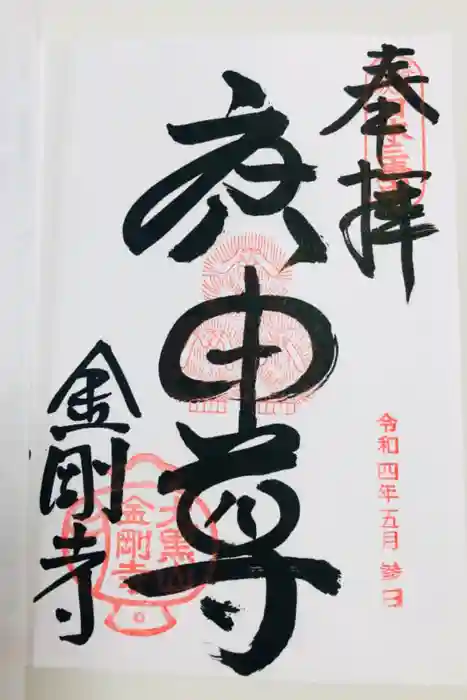 奉拝
庚申尊
令和四年五月参日
金剛寺
大黒山
金剛寺